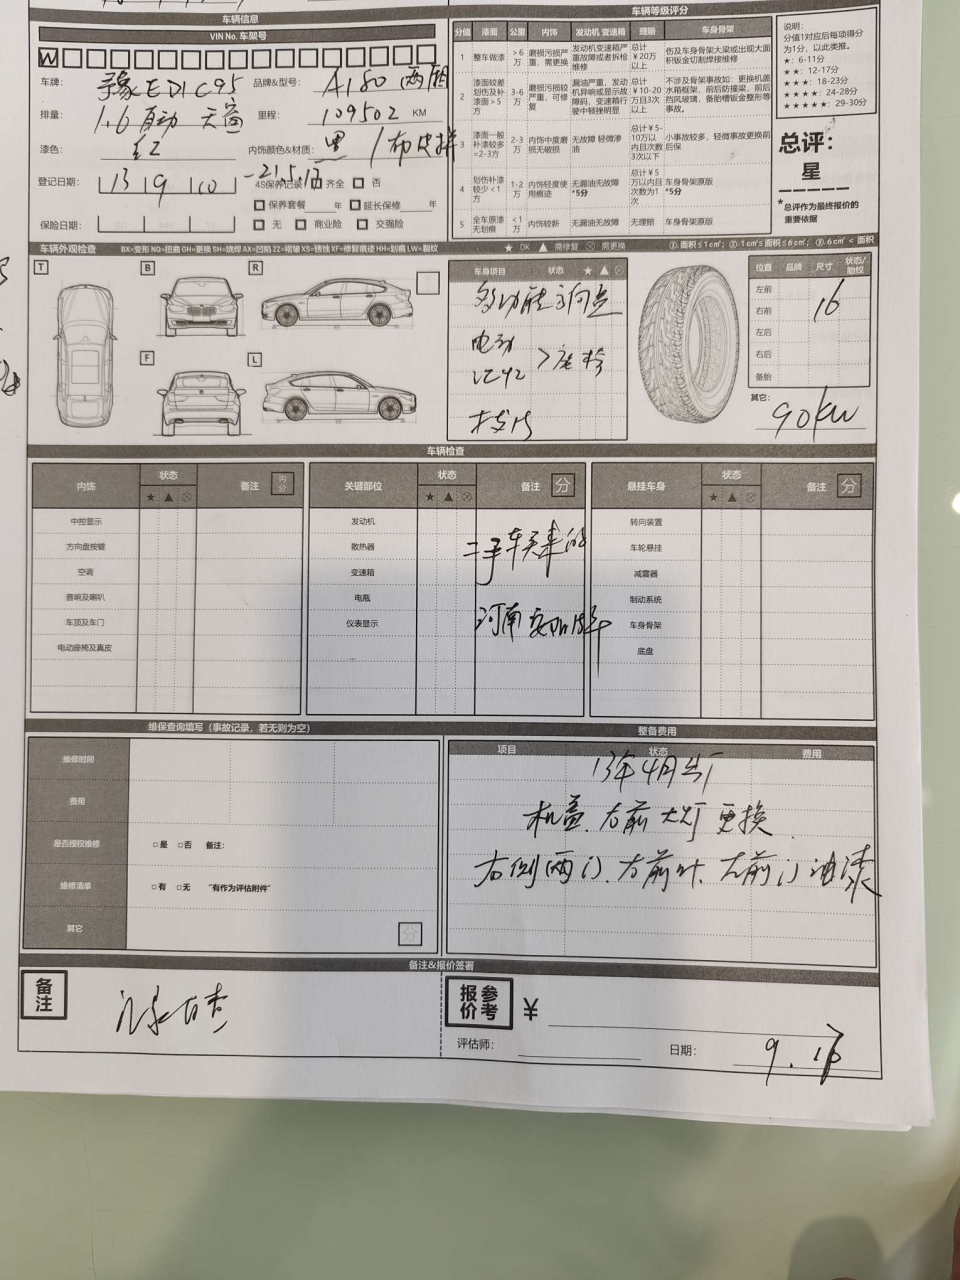 车辆信息
VIN No. 车架号
W
车牌: 豫ED1C95 品牌&型号: A180 两厢
排量: 1.6 自动 天窗 里程: 109502 KM
漆色: 红 内饰颜色&材质: 黑 / 布皮拼
登记日期: 13 9 10 4S保养记录 齐全 否
保养套餐 年 延长保修 年
保险日期: 无 商业险 交强险
车辆等级评分
分值 漆面 公里 内饰 发动机 变速箱 理赔 车身骨架
1 整车做漆 >6万 磨损污损严重，需更换 发动机变速箱严重故障或者拆检维修 总计¥20万以上 伤及车身骨架大梁或出现大面积钣金切割焊接维修
2 漆面较差划伤及补漆面>5方 3-6万 磨损污损较严重，可修复 漏油严重，发动机异响或显示故障码，变速箱行驶中顿挫明显 总计¥10-20万且3次以上 不涉及骨架事故如：更换机盖水箱框架，前后防撞梁，前后挡风玻璃，备胎槽钣金整形等事故。
3 漆面一般补漆较多=2-3方 2-3万 内饰中度磨损无破损 无故障 轻微渗油 总计¥5-10万以内且次数3次以下 小事故较多，轻微事故更换前后保
4 划伤补漆较少<1方 1-2万 内饰轻度使用痕迹 无漏油无故障 *5分 总计¥5万以内且次数为1次 车身骨架原版 *5分
5 全车原漆无划痕 <1万 内饰较新 无漏油无故障 无理赔 车身骨架原版
说明:
分值1对应后每项得分为1分，以此类推。
★: 6-11分
★★: 12-17分
★★★: 18-23分
★★★★: 24-28分
★★★★★: 29-30分
总评:
星
*总评作为最终报价的重要依据
车辆外观检查 BX=变形 NQ=扭曲 GH=更换 SH=烧焊 AX=凹陷 ZZ=褶皱 XS=锈蚀 XF=修复痕迹 HH=划痕 LW=裂纹 ★ OK ▲ 需修复 ⊗ 需更换 ①.面积≤1cm²; ②.1cm²≤面积≤6cm²; ③.6cm²<面积
T B R
F L
车身项目 状态 ★ ▲ ⊗
多功能方向盘
电动
座椅
位置 品牌 尺寸 状态/胎纹
左前
右前 16
左后
右后
备胎
其它: 90kw
车辆检查
内饰 状态 备注 内分
★ ▲ ⊗
中控显示
方向盘按键
空调
音响及喇叭
车顶及车门
电动座椅及真皮
关键部位 状态 备注 分
★ ▲ ⊗
发动机
散热器 二手车买来的
变速箱
电瓶
仪表显示 河南安阳
悬挂车身 状态 备注 分
★ ▲ ⊗
转向装置
车轮悬挂
减震器
制动系统
车身骨架
底盘
维保查询填写（事故记录，若无则为空）
维修时间
费用
是否授权维修 □是 □否 备注:
维修清单 □有 □无 "有作为评估附件"
其它 分
整备费用
项目 状态 费用
13年4月出厂
机盖. 右前大灯更换.
右侧两门. 右前叶. 左前门油漆
备注&报价签署
备注
参考报价 ¥
评估师: 日期: 9.16